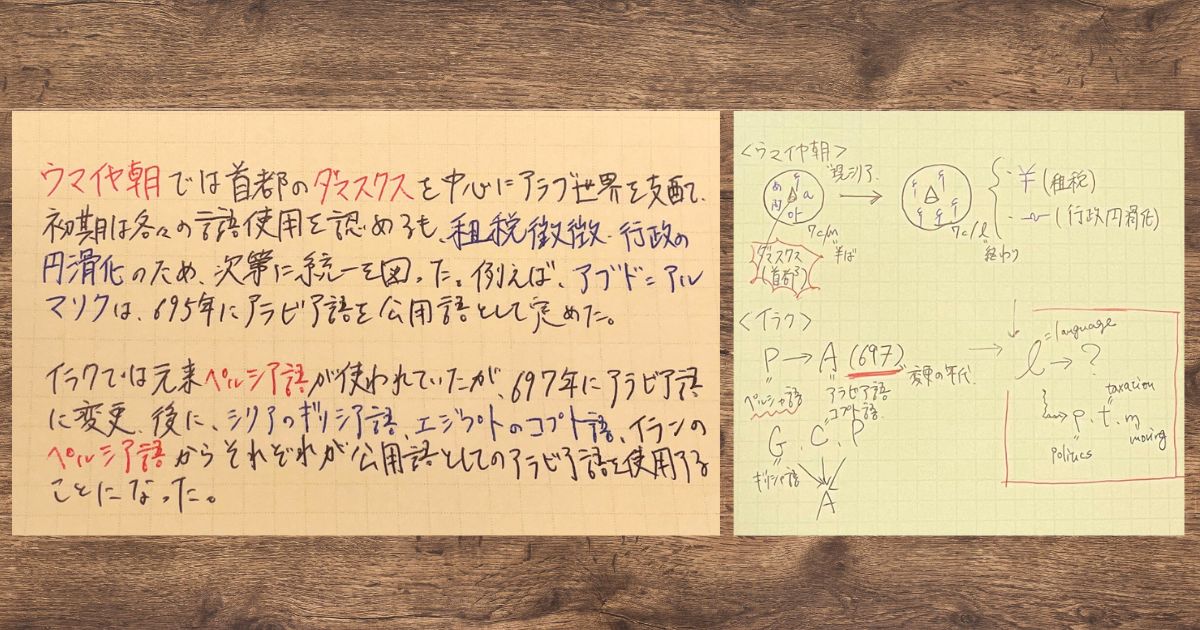 ウマイヤ朝では首都のダマスクスを中心にアラブ世界を支配て、
初期は各々の言語使用を認めるも、租税徴徴・行政の
円滑化のため、次第に統一を図った。例えば、アブド=アル
マリクは、695年にアラビア語を公用語として定めた。
イラクでは元来ペルシア語が使われていたが、697年にアラビア語
に変更、後に、シリアのギリシア語、エジプトのコプト語、イランの
ペルシア語からそれぞれが公用語としてのアラビア語を使用する
ことになった。
<ウマイヤ朝>
現シリア
あ a
円 아
7c/m
半ば
ダマスクス
(首都)
7c/l
終わり
・¥(租税)
(行政円滑化)
<イラク>
P→A (697)
変更の年代
ペルシャ語
アラビア語
コプト語
G、C、P
ギリシャ語
A
l=language
→?
taxation
p. t. m
moving
politics